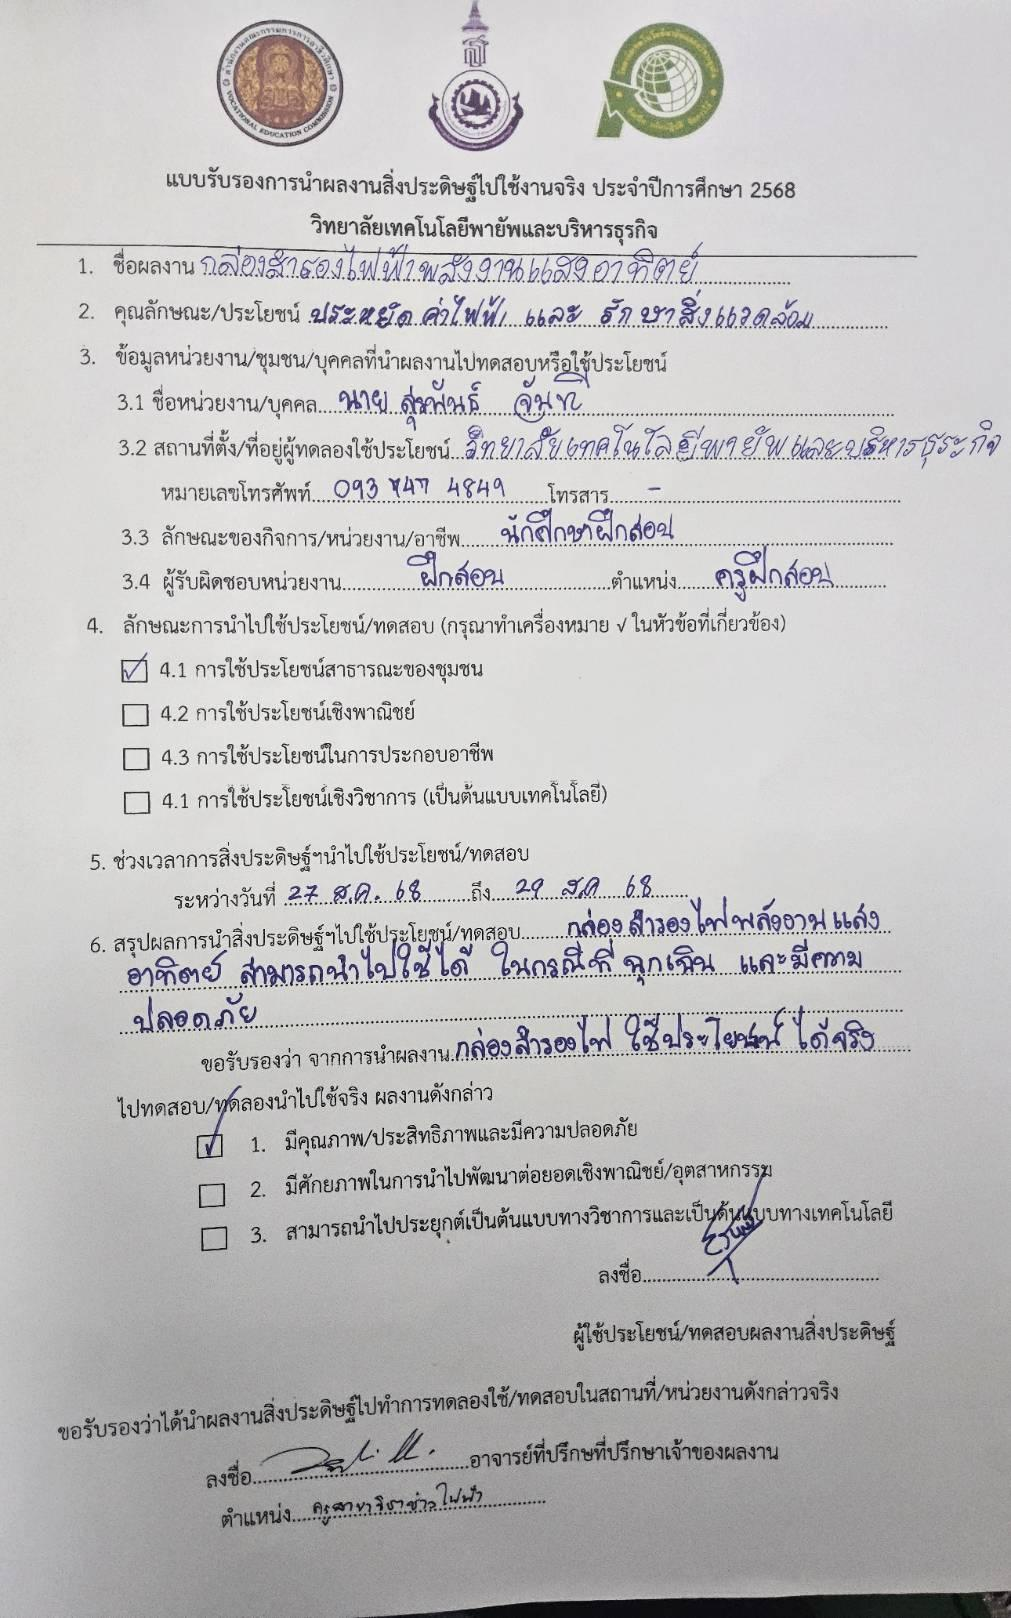 สำนักงานคณะกรรมการการอาชีวศึกษา
VOCATIONAL EDUCATION COMMISSION
แบบรับรองการนำผลงานสิ่งประดิษฐ์ไปใช้งานจริง ประจำปีการศึกษา 2568
วิทยาลัยเทคโนโลยีพายัพและบริหารธุรกิจ
1. ชื่อผลงาน กล่องสำรองไฟฟ้าพลังงานแสงอาทิตย์
2. คุณลักษณะ/ประโยชน์ ประหยัดค่าไฟฟ้า และ รักษาสิ่งแวดล้อม
3. ข้อมูลหน่วยงาน/ชุมชน/บุคคลที่นำผลงานไปทดสอบหรือใช้ประโยชน์
3.1 ชื่อหน่วยงาน/บุคคล นาย สุรพันธ์ จันที
3.2 สถานที่ตั้ง/ที่อยู่ผู้ทดลองใช้ประโยชน์ วิทยาลัยเทคโนโลยีพายัพและบริหารธุระกิจ
หมายเลขโทรศัพท์ 093 747 4849 โทรสาร -
3.3 ลักษณะของกิจการ/หน่วยงาน/อาชีพ นักศึกษาฝึกสอน
3.4 ผู้รับผิดชอบหน่วยงาน ฝึกสอน ตำแหน่ง ครูฝึกสอน
4. ลักษณะการนำไปใช้ประโยชน์/ทดสอบ (กรุณาทำเครื่องหมาย √ ในหัวข้อที่เกี่ยวข้อง)
✓ 4.1 การใช้ประโยชน์สาธารณะของชุมชน
4.2 การใช้ประโยชน์เชิงพาณิชย์
4.3 การใช้ประโยชน์ในการประกอบอาชีพ
4.1 การใช้ประโยชน์เชิงวิชาการ (เป็นต้นแบบเทคโนโลยี)
5. ช่วงเวลาการสิ่งประดิษฐ์ฯนำไปใช้ประโยชน์/ทดสอบ
ระหว่างวันที่ 27 ส.ค. 68 ถึง 29 ส.ค 68
6. สรุปผลการนำสิ่งประดิษฐ์ฯไปใช้ประโยชน์/ทดสอบ กล่องสำรองไฟพลังงานแสง
อาทิตย์ สามารถนำไปใช้ได้ ในกรณีที่ ฉุกเฉิน และมีความ
ปลอดภัย
ขอรับรองว่า จากการนำผลงาน กล่องสำรองไฟ ใช้ประโยชน์ ได้จริง
ไปทดสอบ/ทดลองนำไปใช้จริง ผลงานดังกล่าว
✓ 1. มีคุณภาพ/ประสิทธิภาพและมีความปลอดภัย
2. มีศักยภาพในการนำไปพัฒนาต่อยอดเชิงพาณิชย์/อุตสาหกรรม
3. สามารถนำไปประยุกต์เป็นต้นแบบทางวิชาการและเป็นต้นแบบทางเทคโนโลยี
ลงชื่อ
ผู้ใช้ประโยชน์/ทดสอบผลงานสิ่งประดิษฐ์
ขอรับรองว่าได้นำผลงานสิ่งประดิษฐ์ไปทำการทดลองใช้/ทดสอบในสถานที่/หน่วยงานดังกล่าวจริง
ลงชื่อ อาจารย์ที่ปรึกษที่ปรึกษาเจ้าของผลงาน
ตำแหน่ง ครูสาขาวิชาช่างไฟฟ้า